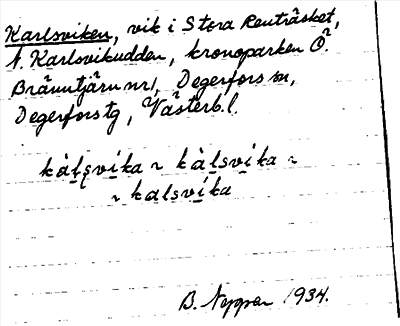 Karlsviken, vik i Stora Renträsket,
N. Karlsvikudden, kronoparken Ö.
Bränntjärn nr 1, Degerfors sn,
Degerfors tg, Västerb. l.
kàlsvika ~ kàlsvika ~
~ kalsvíka
B. 1934.